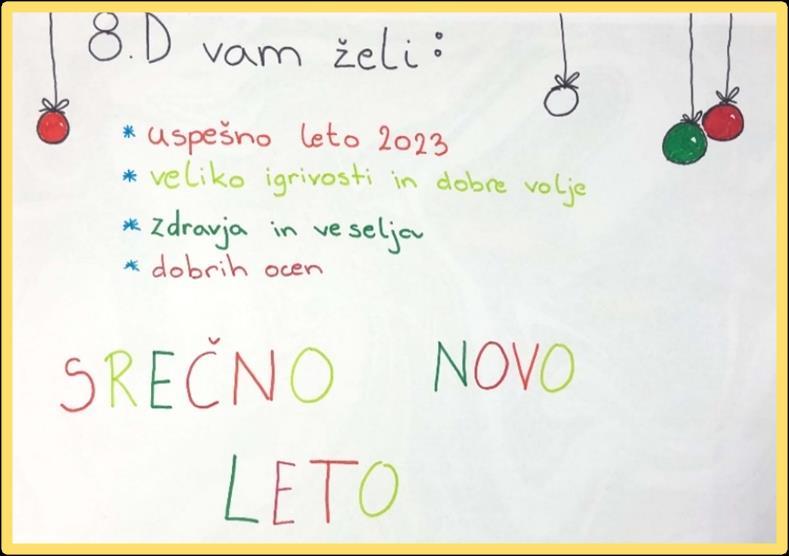 8.D vam želi:
* uspešno leto 2023
* veliko igrivosti in dobre volje
* zdravja in veselja
* dobrih ocen
SREČNO NOVO
LETO